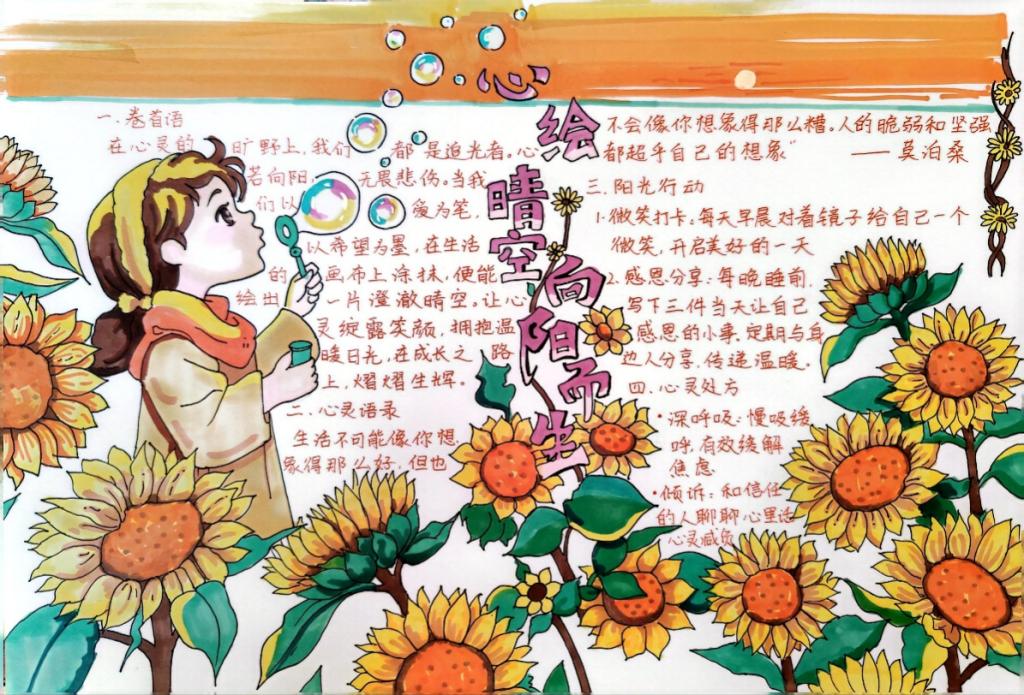 心绘晴空 向阳而生
一.卷首语
在心灵的旷野上,我们都是追光者。心
若向阳,无畏悲伤。当我
们以爱为笔,
以希望为墨,在生活
的画布上涂抹,便能
绘出一片澄澈晴空。让心
灵绽露笑颜,拥抱温
暖日光,在成长之路
上,熠熠生辉。
二.心灵语录
生活不可能像你想
象得那么好,但也
不会像你想象得那么糟。人的脆弱和坚强
都超乎自己的想象”
——莫泊桑
三.阳光行动
1.微笑打卡:每天早晨对着镜子给自己一个
微笑,开启美好的一天
2.感恩分享:每晚睡前,
写下三件当天让自己
感恩的小事,定期与身
边人分享,传递温暖。
四.心灵处方
•深呼吸:慢吸缓
呼,有效缓解
焦虑
•倾诉:和信任
的人聊聊心里话
心灵减负